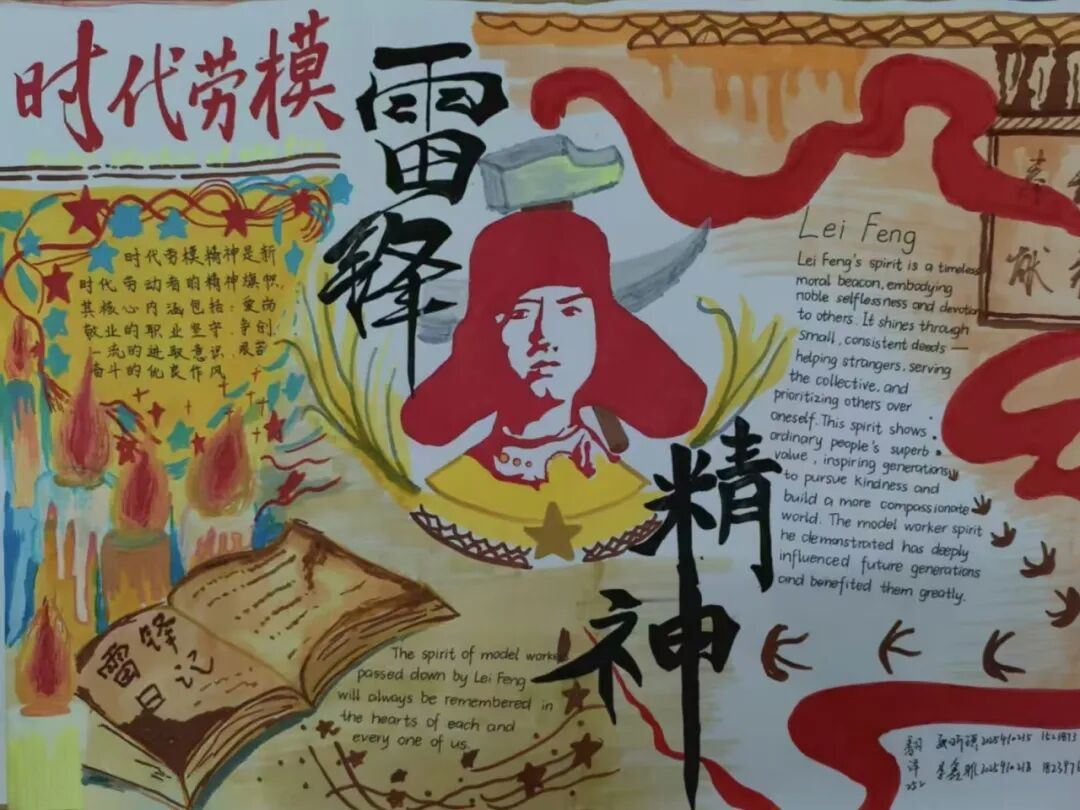 时代劳模
雷锋
精神
时代劳模精神是新
时代劳动者的精神旗帜,
其核心内涵包括:爱岗
敬业的职业坚守、争创
一流的进取意识、艰苦
奋斗的优良作风
Lei Feng
Lei Feng's spirit is a timeless
moral beacon, embodying
noble selflessness and devotion
to others. It shines through
small, consistent deeds —
helping strangers, serving
the collective, and
prioritizing others over
oneself. This spirit shows
ordinary people's superb
value, inspiring generations
to pursue kindness and
build a more compassionate
world. The model worker spirit
he demonstrated has deeply
influenced future generations
and benefited them greatly.
雷锋
日记
The spirit of model worker
passed down by Lei Feng
will always be remembered in
the hearts of each and
every one of us.
献
翻
译
252